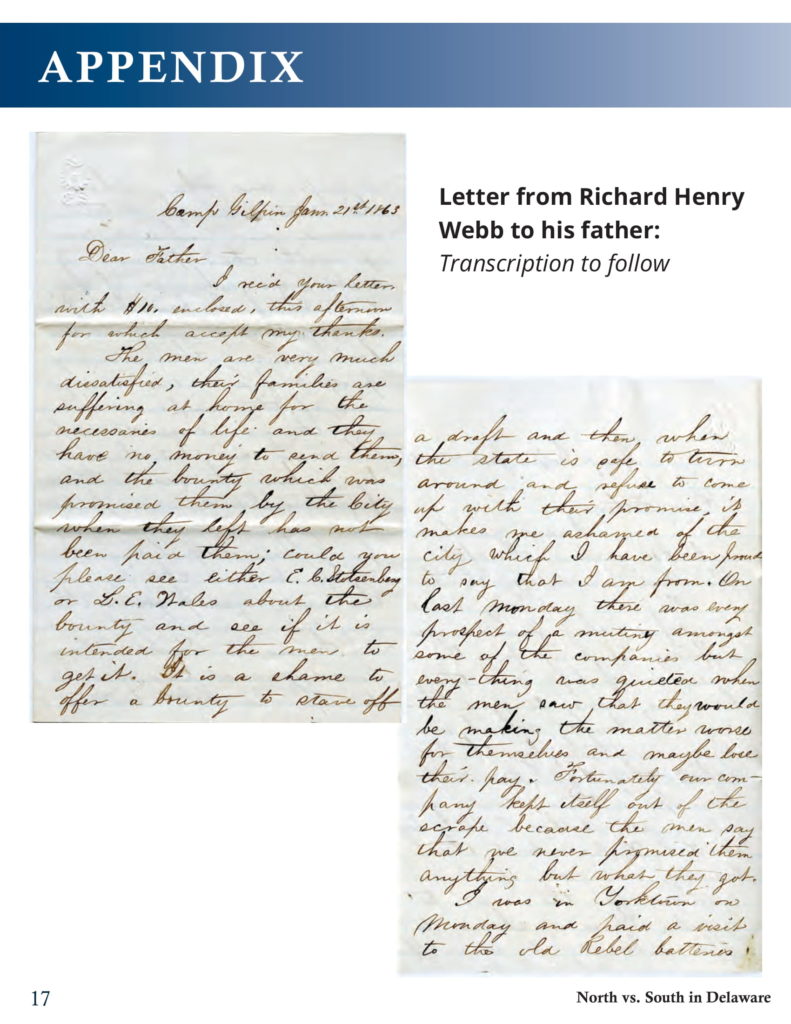 APPENDIX
Letter from Richard Henry
Webb to his father:
Transcription to follow
Camp Gilpin Jann. 21st 1863
Dear Father
I rec'd your letter
with $10. enclosed, this afternoon
for which accept my thanks.
The men are very much
dissatisfied, their families are
suffering at home for the
necessaries of life and they
have no money to send them,
and the bounty which was
promised them by the City
when they left has not
been paid them; could you
please see either E. C. Stotsenberg
or L. E. Wales about the
bounty and see if it is
intended for the men to
get it. It is a shame to
offer a bounty to stave off
a draft and then, when
the state is safe to turn
around and refuse to come
up with their promise, it
makes me ashamed of the
city which I have been proud
to say that I am from. On
last Monday there was every
prospect of a mutiny amongst
some of the companies but
every-thing was quieted when
the men saw that they would
be making the matter worse
for themselves and maybe lose
their pay. Fortunately our com-
pany kept itself out of the
scrape because the men say
that we never promised them
anything but what they got.
I was in Yorktown on
Monday and paid a visit
to the old Rebel batteries
17
North vs. South in Delaware